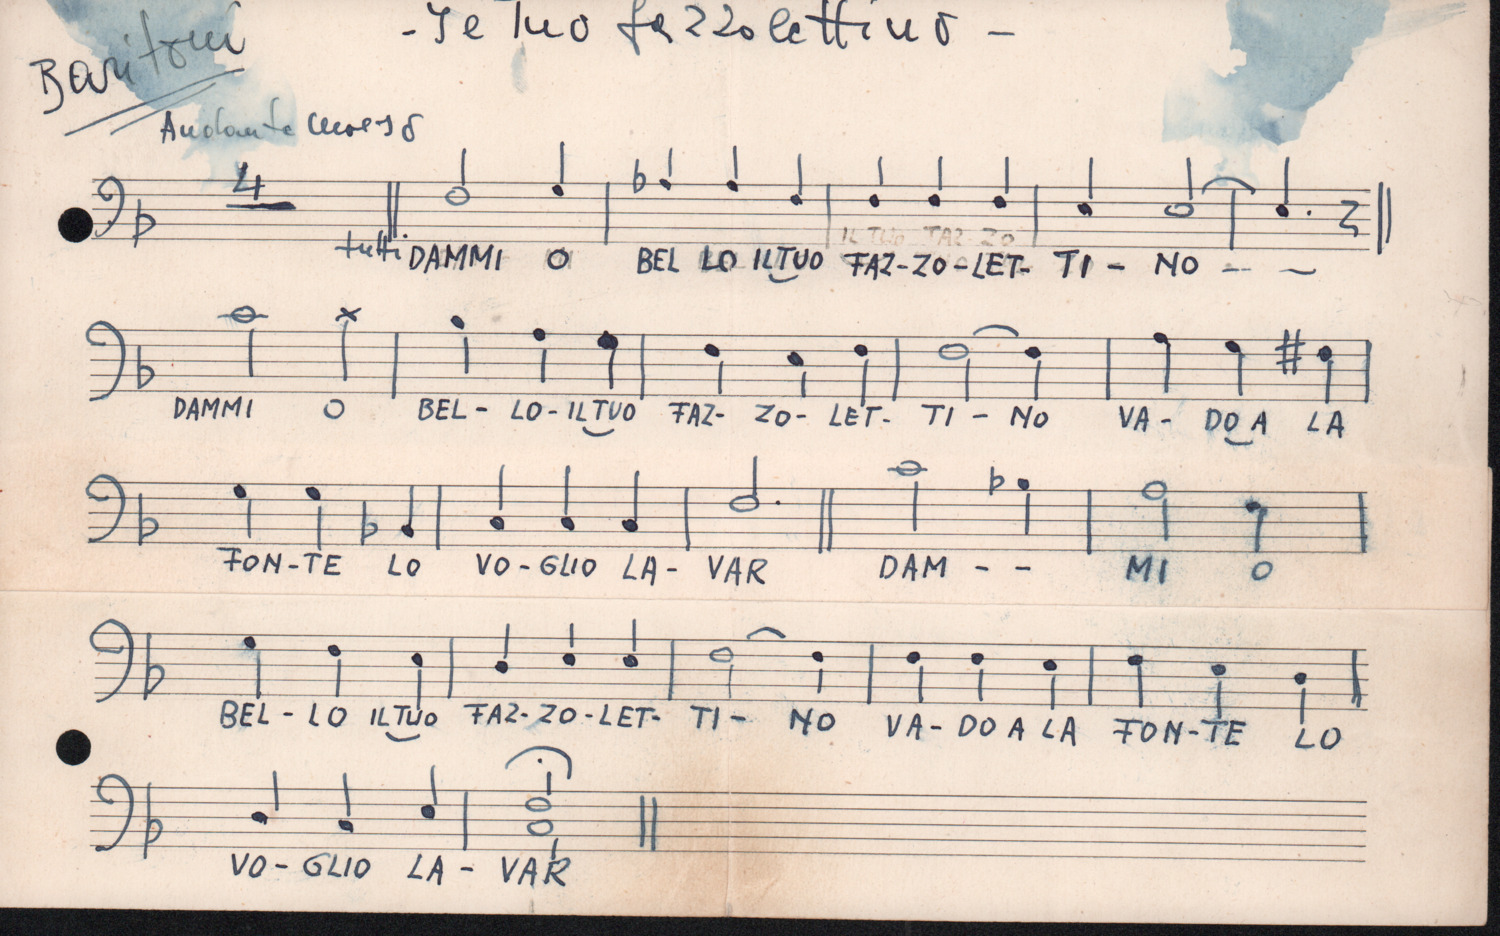 - Il Tuo fazzolettino -
Baritoni
Andante mosso
4
tutti DAMMI O BEL LO IL TUO FAZ-ZO-LET- TI - NO - -
IL TUO FAZ- ZO
DAMMI O BEL- LO- IL TUO FAZ- ZO- LET- TI - NO VA- DO A LA
FON-TE LO VO-GLIO LA- VAR DAM - - MI O
BEL- LO IL TUO FAZ-ZO-LET- TI- NO VA-DO A LA FON-TE LO
VO- GLIO LA- VAR